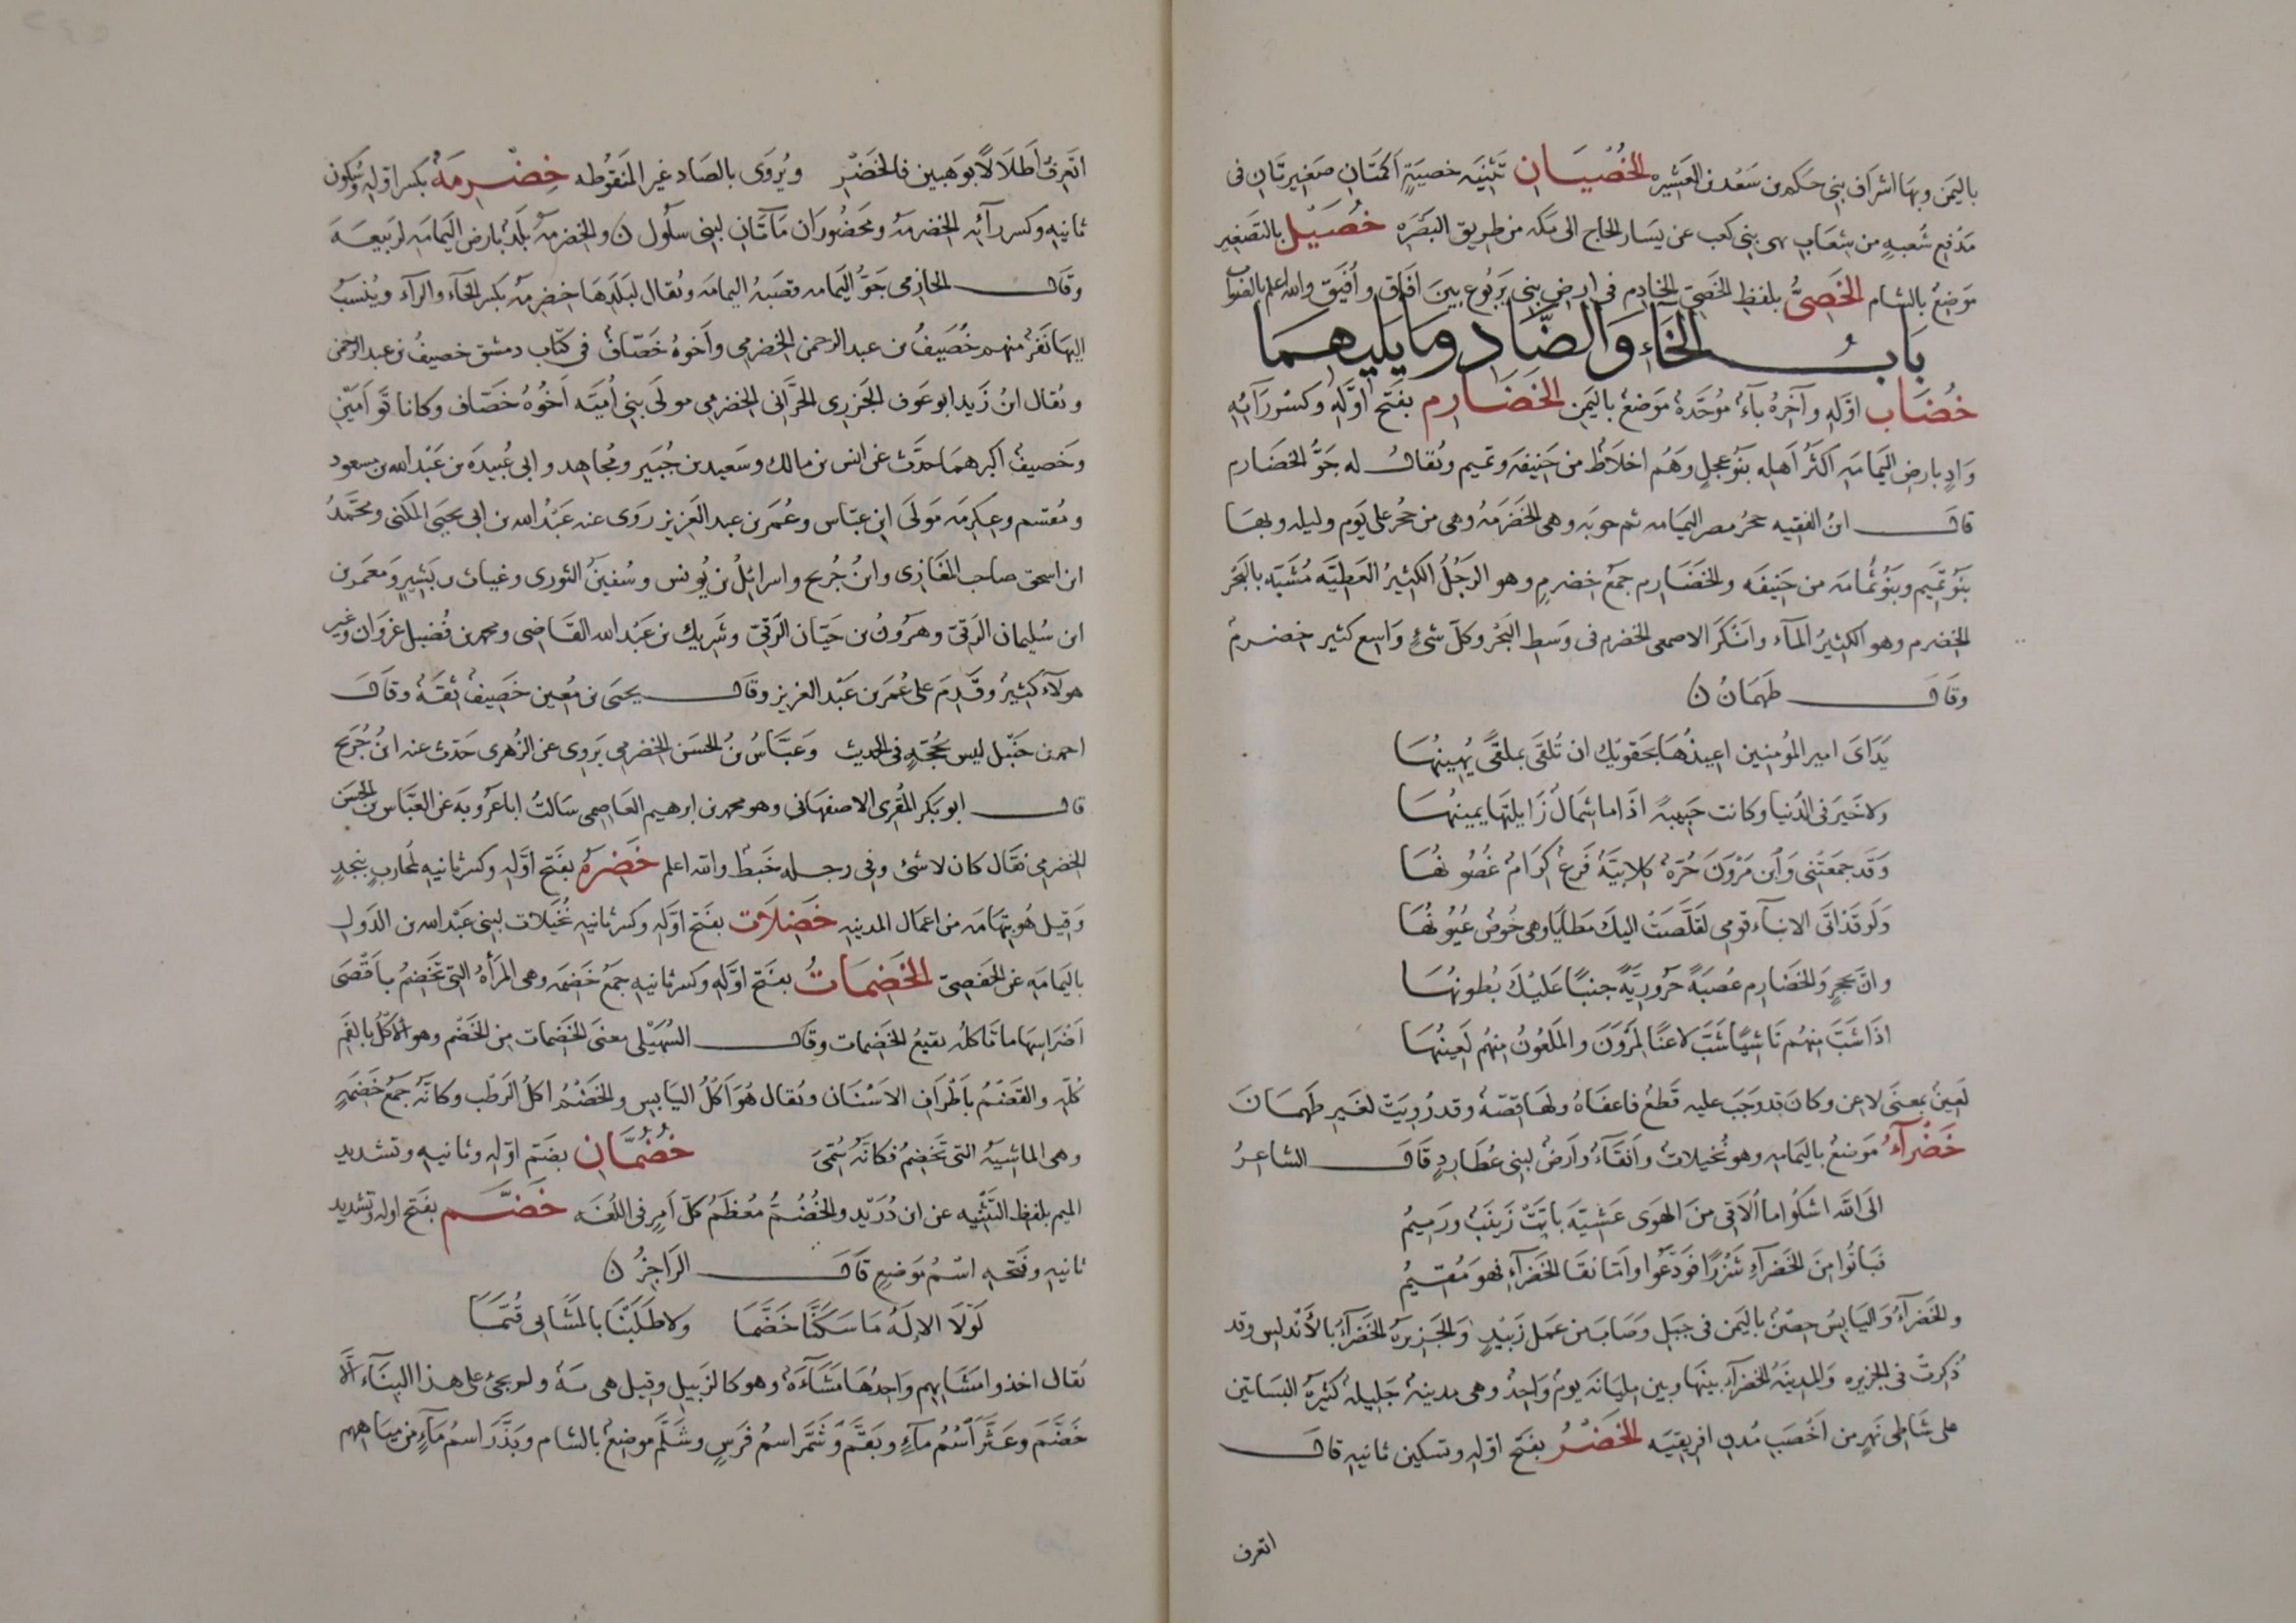 باليمن وبها اشراف بني حكم بن سعد بن العشيره الخُصْيَـان تثنيه خصيَةٍ اَكمَتَان صغيرتان فى
مَدْفع شُعبةٍ من شِعَاب نهى بني كعب عن يَسار الحاج الى مكه من طريق البَصَره خُصَيْل بالتصغير
مَوضِعٌ بالشام الخَصِىُّ بلفظ الخَصِىّ الخادِم فى ارض بنى يَربُوع بينَ افَاق واُفَيّق والله اعلم بالصَواب
بَابُ الخَاءِ وَالضّادِ ومَا يَليهمَا
خُضَاب اوّله وآخِرُهُ بآءٌ مُوَحّدهٌ مَوضعٌ باليَمن الخَضَارِم بفَتح اَوَّله وكسْر رآئهِ
وَادٍ بارضِ اليَمَامَه اَكثَرُ اَهلهِ بَنُو عجلٍ وَهُم اخلاطٌ من حَنِيفه وتميم ويُقالُ له جَوّ الخضارم
قال ابنُ الفقيه حجرُ مصر اليمَامه ثم جوبَه وهى الخضَرَمَهُ وهى من حجر على يَوم وليله وبها
بَنُو تَميَم وَبَنُو ثُمامَه من حَنِيفَه والخَضَارم جَمعُ خضرِمٍ وهو الرَجُلُ الكَثِيرُ العَطِيَّه مُشَبَّه بالبَحْر
الخضرم وهو الكَثيرُ المَآء وَانْكَرَ الاصمعى الخضرم فى وَسط البَحْر وكلّ شئٍ وَاسِع كثير خِضرمٌ
وقَال طَهمَانُ ن
يَدَاىَ امير المؤمِنِين اعيذُهَا بحَقويْك ان تُلقَى بملقىً يُهينُهَا
ولا خَيرَ فى الدُنيا وكانت حَبيبهً اذَا ما شِمالٌ زَايلتها يَمينُها
وَقَد جمعَتْنى وَابن مَرْوَنَ حُرّهٌ كِلابيّهٌ فَرعٌ كرَامٌ غُصُونُها
وَلَو قَدْ اتَى الانبَآء قومى لقلَّصَتْ اليكَ مَطايَا وهى خُوصٌ عيُونُها
وانَّ بحجرٍ وَالخضارم عصبَهً حَرُوريَّهً جنبًا عَليْكَ بُطونُهَا
اذَا شَبَّ مِنهُم نَاشِئٌ شَبَّ لاعنًا لمَرْوَنَ والمَلعُونُ مِنهُم لَعِينُهَا
لَعِينٌ بمعنَى لاعِن وكانَ قد وَجَبَ عليه قَطعٌ فاعفَاهُ ولها قصَّهٌ وقد رُوِيَتْ لغَير طَهمَانَ
خَضْرَآءُ مَوضعٌ باليَمامه وهو نُخيلاتٌ وَاَنقَآءٌ وَاَرضٌ لبنى عُطَارِدٍ قَال الشاعرُ
الَى الله اشكوا ما اُلَاقى منَ الهوَى عَشِيّهَ بانَتْ زَينَبٌ ورَميمُ
فبَانُوا مِنَ الخَضرآءِ شَزرًا فَوَدَّعُوا وامّا نقَا الخضرآءِ فهوَ مُقيمُ
والخَضرآءُ وَاليَابسُ حِصْنٌ باليَمن فى جَبَل وصَابَ من عَمَل زَبيْد وَالجَزيرهُ الخَضرَآءُ بالأندلس وقد
ذُكِرتْ فى الجزيره وَالمدينَهُ الخضرآء بينَها وبين مِليانَه يومٌ وَاحِدٌ وهى مدينهٌ جَلِيلهٌ كثيرهُ البساتين
على شاطِى نَهرٍ من اَخْصَبِ مُدن افريقِيَه الخَضْرُ بفَتح اوّله وتسكين ثانيهِ قال
اتعرف
اتَعرفُ اَطْلَالاً بوَهبين فالخَضْرِ ويُروَى بالصَاد غير المَنقُوطه خِضْرِمَهُ بكسر اوّلهِ وسُكون
ثانِيهِ وكسر رآئِهِ الخضرمهُ ومحضُورَان مَآتَان لبنى سَلُول ن والخضرمهُ بَلَدٌ بارض اليَمامَه لرَبيعَهَ
وقَال الحازمى جَوُّ اليَمامه قصَبهُ اليمامَه ويُقال لبَلَدِهَا خِضرمهُ بكسر الخَآء والرآء ويُنْسَبُ
اليهَا نَفَرٌ منهم خُصَيفُ بن عبد الرحمن الخِضرمى وأخوهُ خَصّافٌ فى كتَاب دمشق خصيفُ بن عبد الرحمن
ويُقال ابنُ زَيد ابو عَوف الجَزرى الحَرَّانى الخضرمى مولَى بنى اُميّه اَخُوهُ خَصّاف وكانا تَواَمَيْن
وخَصيفٌ اكبرهمَا حدَّث عن انس بن مالك وسَعيد بن جُبَير ومُجاهِد وابى عُبيدَه بن عَبْد الله بن مسعود
ومُقسم وعِكرِمَه مَولَى ابن عبّاس وعُمَر بن عبد العَزيز رَوَى عنه عَبْدُ الله بن ابى يحيَى المكَى ومحَمّدُ
ابن اسحق صاحب المغَازِى وابنُ جُريح واسرائِلُ بن يُونس وسُفينُ الثورى وغياث بن بَشِيرٍ وَمعمَر بن
ابن سُليمان الرَقىّ وهرُونُ بن حَيّان الرَقىّ وشَرِيك بن عَبْد الله القَاضى ومحمد بن فُضيل غَزوَان وغير
هولآءِ كَثِيرٌ وقَدِمَ على عُمَر بن عَبْد العَزيز وقَال يحيَى بن مُعين خَصِيفٌ ثقَهٌ وقَال
احمد بن حَنْبَل ليس بحُجّهٍ فى الحديث وَعَبّاسُ بنُ الحسَن الخِضرمى يَروِى عن الزُهرى حَدّث عنه ابنُ جُرَيح
قال ابو بكر المُقرِى الاصفهَانى وهو محمد بن ابرهيم العَاصِمى سَالتُ ابا عَرُوبَه عن العبّاس بن الحسَن
الخضرمى فقال كان لا شئ وفى رجله خَبطٌ والله اعلم خَضِرَهُ بفَتح اوّله وكسر ثانيهِ لمُحاربٍ بنجدٍ
وَقيل هُو بتهَامَه من اعمَال المدينه خَضِلَات بفَتح اوّله وكسر ثانيهِ نُخَيلات لبنى عَبْد الله بن الدَول
باليَمامَه عن الحَفصِىّ الخَضِمَاتُ بفَتح اوّله وكسر ثانيه جَمعُ خَضِمَه وهى المَرأهُ التى تَخضِمُ باَقْصَى
اَضْرَاسِهَا ما تَاكلُه بقيعُ الخَضِمَات وقال السُهَيْلى معنَى الخَضِمَات مِن الخَضْم وهو الأكلُ بالفَم
كُلّهِ والقَضْمُ بأَطْرَافِ الاسْنَان ويُقال هُوَ اَكْلُ اليَابس والخَضْمُ اكلُ الرَطْب وكانّهُ جَمعُ خَضِمَهٍ
وهى الماشِيَهُ التى تَخضِمُ فكانّهُ سُمّىَ خُضُمَّانِ بضَم اوّلهِ وثانيهِ وتشديد
الميم بلفظ التَثْنِيه عن ابن دُرَيْد والخُضُمُّ مُعْظَمُ كلّ اَمرٍ فى اللُغَه خَضَّم بفَتح اوله وتشديد
ثانيهِ وفَتحهِ اسْمُ مَوضعٍ قَال الرَاجِزُ ن
لَوْلَا الالَهُ مَا سَكَنَّا خَضَّمَا ولا طَلَلْنَا بالمَشَائى قُيَّمَا
يُقال اخذوا مَشَائِيهِم واحِدُهَا مَشْآهٌ وهو كالزبيلِ وقيل هى سَهٌ ولم يجئ على هذا البنَآء الَّا
خَضَّمَ وعَثَّرَ اسْمُ مآءٍ وبَقَّم وَشَمَّر اسمُ فَرَسٍ وشَلَّم موضعٌ بالشام وبَذَّرَ اسمُ مَآءٍ من مِيَاهِهِم